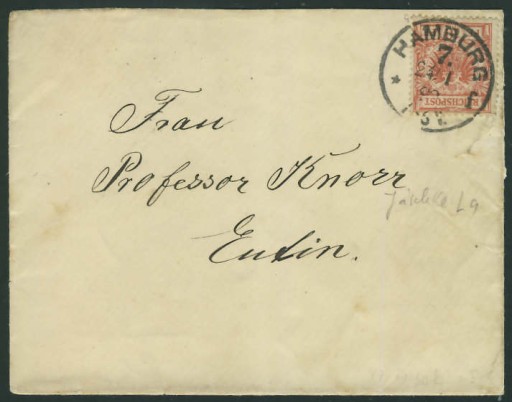 HAMBURG
7.
REICHSPOST
Frau
Professor Knorr
Eutin.